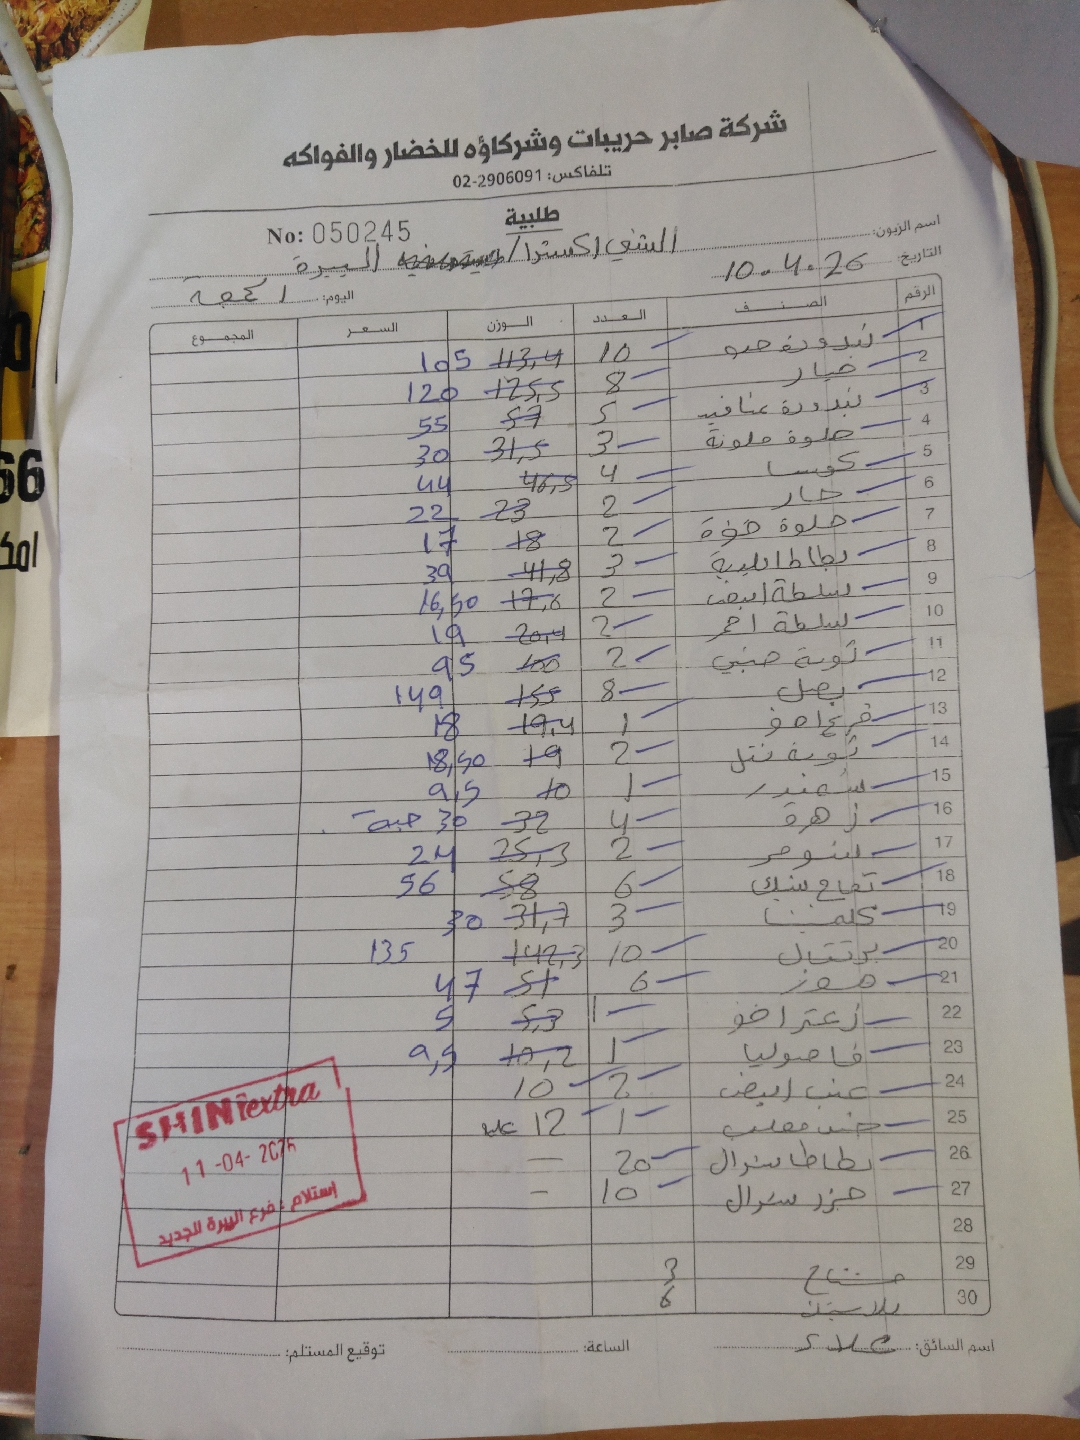 شركة صابر حريبات وشركاؤه للخضار والفواكه
تلفاكس: 02-2906091
طلبية
No: 050245
اسم الزبون: الشني اكسترا / البيرة
التاريخ: 10.4.26
اليوم: الجمعة
الرقم الصنف العدد الوزن السعر المجموع
1 بندورة 10 113,4 105
2 خيار 8 125,5 120
3 بندورة عناقيد 5 57 55
4 حلوة ملونة 3 31,5 30
5 كوسا 4 46,5 44
6 حار 2 23 22
7 حلوة 2 18 17
8 بطاطا 3 41,8 39
9 سلطة ابيض 2 17,6 16,50
10 سلطة احمر 2 20,4 19
11 ثومة صيني 2 100 95
12 بصل 8 155 149
13 قرع 1 19,4 18
14 ثومة 2 19 18,50
15 شمندر 1 10 9,5
16 زهرة 4 32 30 حبة
17 2 25,3 24
18 تفاح بينك 6 58 56
19 كلمنتينا 3 31,7 30
20 برتقال 10 142,3 135
21 موز 6 51 47
22 زعتر 1 5,3 5
23 فاصوليا 1 10,2 9,5
24 عنب ابيض 2 10
25 1 12 علبة
26 بطاطا 20 —
27 جزر 10 -
28
29 3
30 6
SHINI extra
11-04-2026
استلام : فرع البيرة الجديد
اسم السائق:
الساعة:
توقيع المستلم:
66